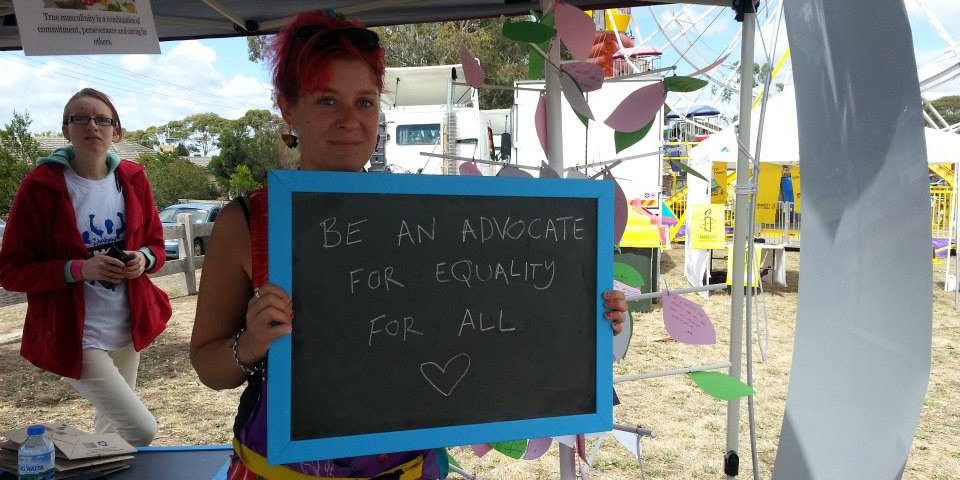 True masculinity is a combination of
commitment, perseverance and caring for
others.
BE AN ADVOCATE
FOR EQUALITY
FOR ALL